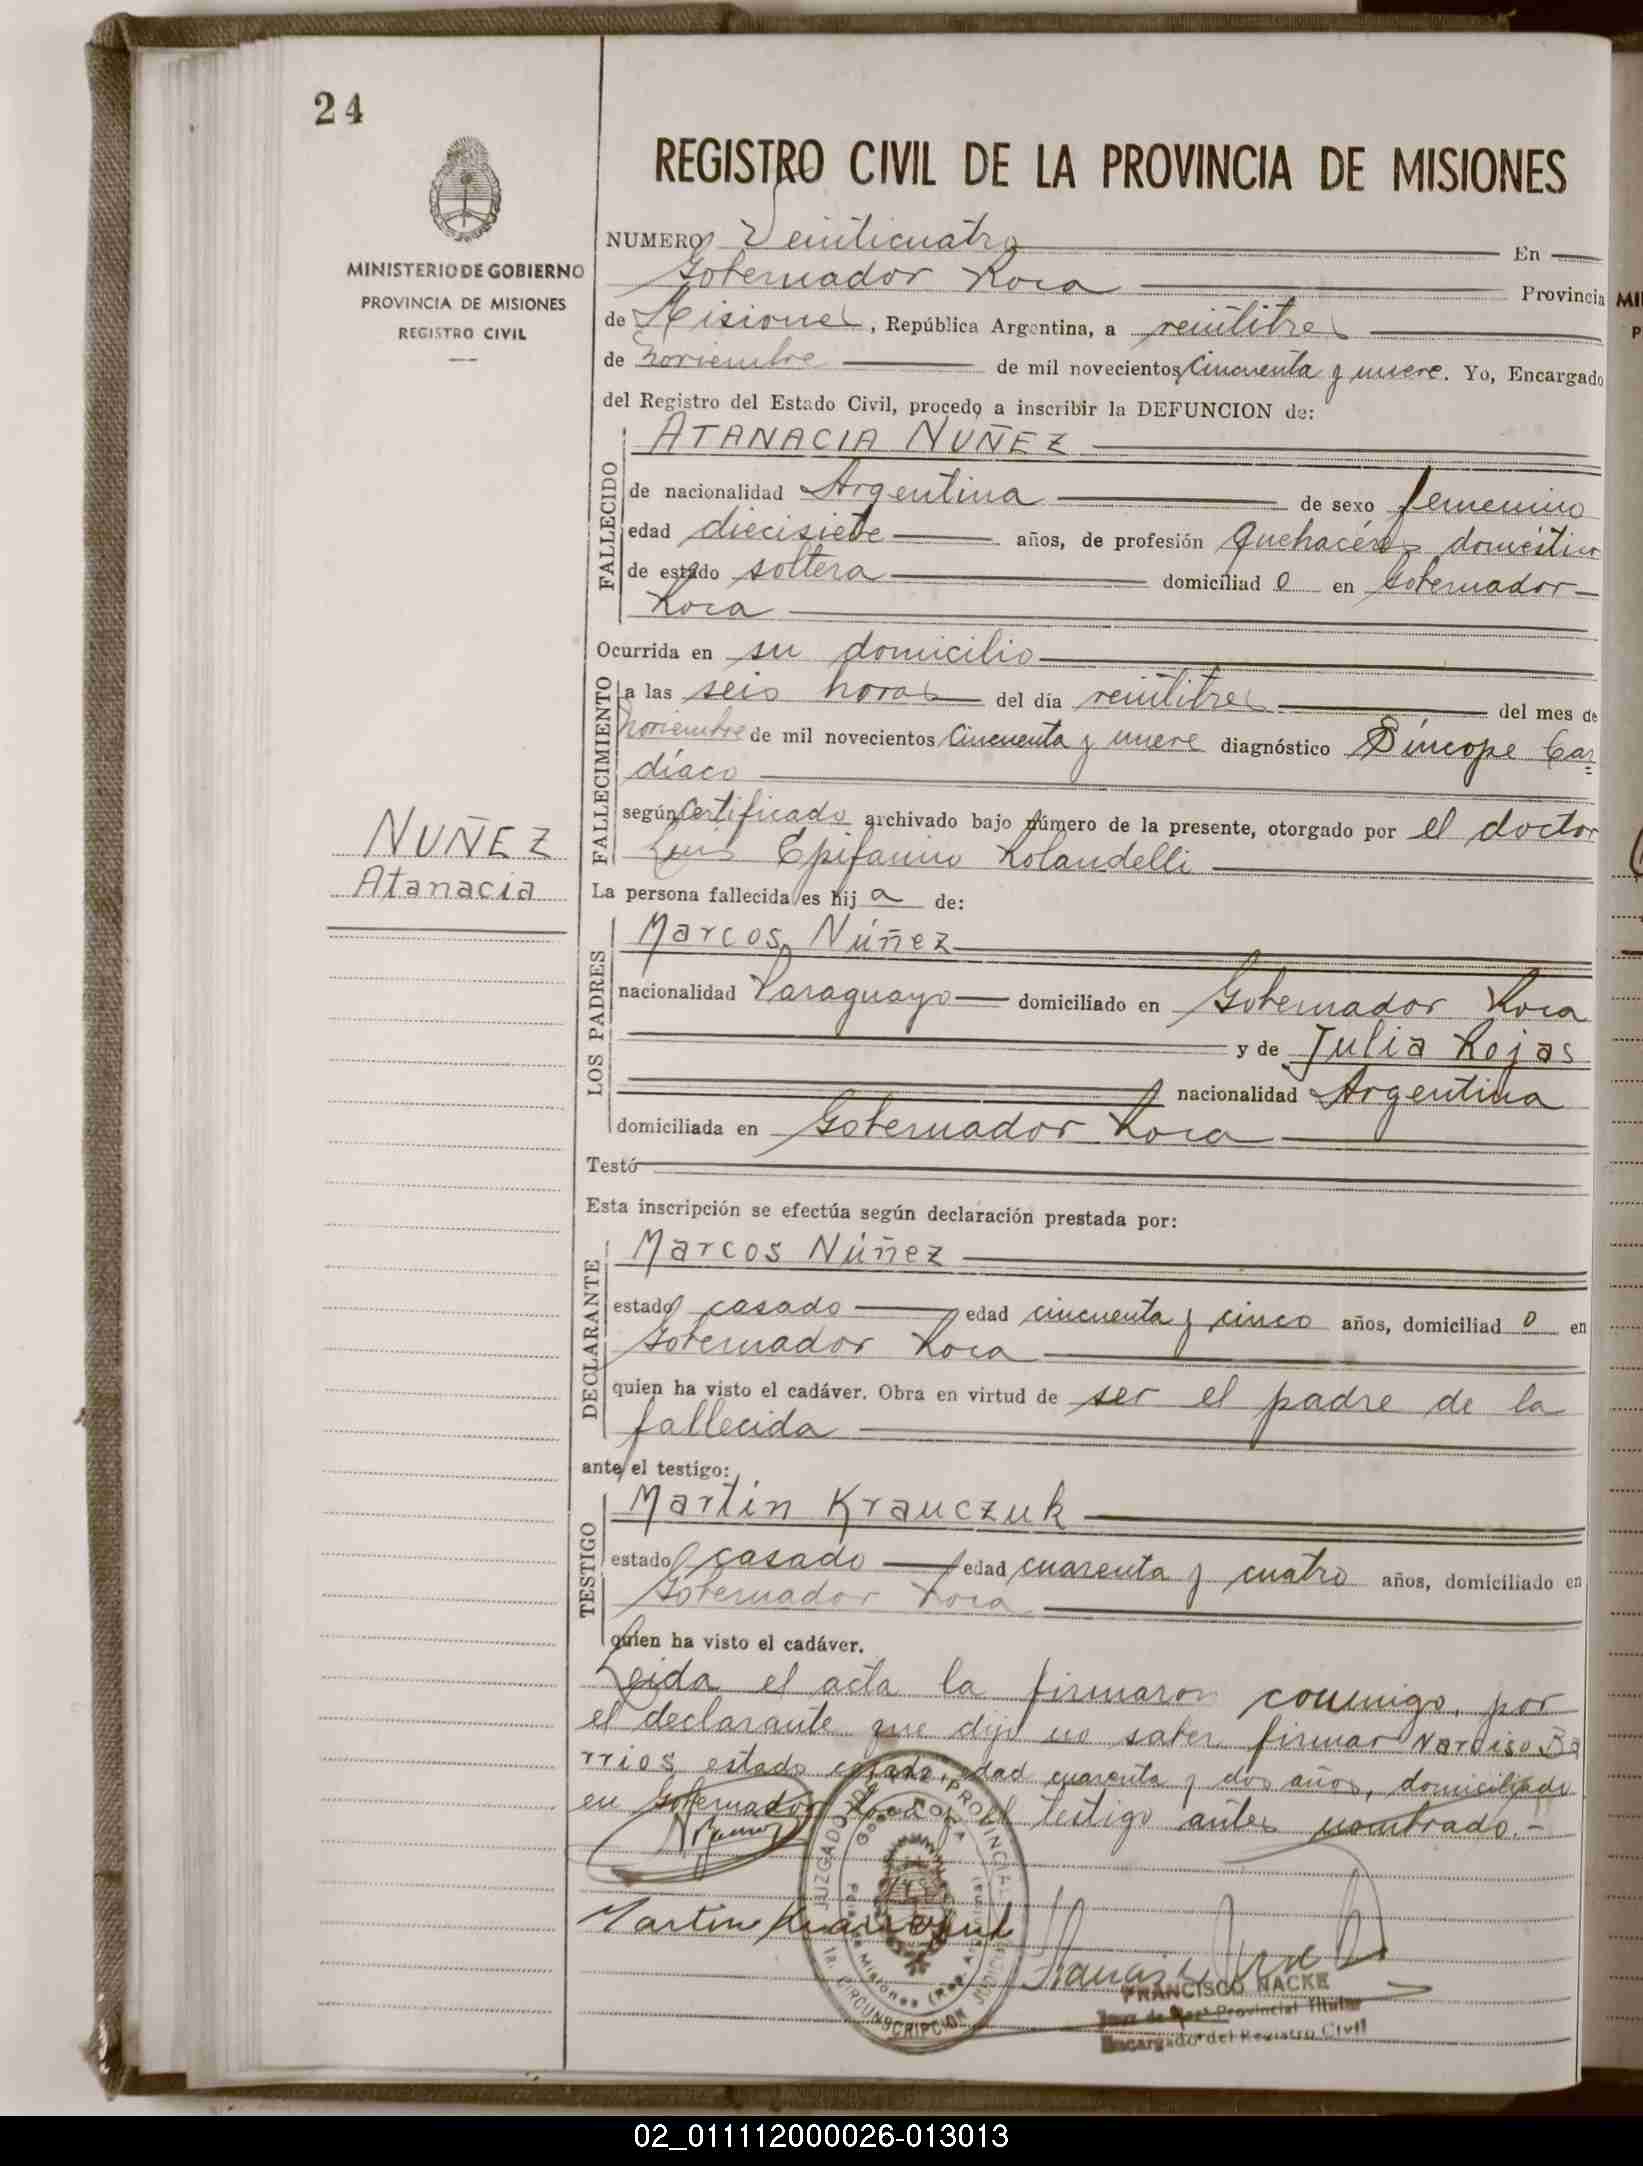 24
MINISTERIO DE GOBIERNO
PROVINCIA DE MISIONES
REGISTRO CIVIL
NUÑEZ
Atanacia
REGISTRO CIVIL DE LA PROVINCIA DE MISIONES
NUMERO Veinticuatro En
Gobernador Roca Provincia
de Misiones, República Argentina, a veintitres
de Noviembre de mil novecientos Cincuenta y nueve. Yo, Encargado
del Registro del Estado Civil, procedo a inscribir la DEFUNCION de:
FALLECIDO
ATANACIA NUÑEZ
de nacionalidad Argentina de sexo femenino
edad diecisiete años, de profesión Quehacéres domésticos
de estado soltera domiciliad o en Gobernador
Roca
Ocurrida en su domicilio
FALLECIMIENTO
a las seis horas del día veintitres del mes de
Noviembre de mil novecientos Cincuenta y nueve diagnóstico Síncope Car=
díaco
según Certificado archivado bajo número de la presente, otorgado por el doctor
Luis Epifanio Rolandelli
La persona fallecida es hij a de:
LOS PADRES
Marcos Núñez
nacionalidad Paraguayo domiciliado en Gobernador Roca
y de Julia Rojas
nacionalidad Argentina
domiciliada en Gobernador Roca
Testó
Esta inscripción se efectúa según declaración prestada por:
DECLARANTE
Marcos Núñez
estado casado edad cincuenta y cinco años, domiciliad o en
Gobernador Roca
quien ha visto el cadáver. Obra en virtud de ser el padre de la
fallecida
ante el testigo:
TESTIGO
Martín Krauczuk
estado casado edad cuarenta y cuatro años, domiciliado en
Gobernador Roca
quien ha visto el cadáver.
Leida el acta la firmaron conmigo, por
el declarante que dijo no saber firmar Narciso Ba
rrios, estado casado, edad cuarenta y dos años, domiciliado
en Gobernador Roca y el testigo antes nombrado.-
JUZGADO DE PAZ PROVINCIAL
Gob. ROCA
Misiones (Rep. Argentina)
1a. CIRCUNSCRIPCION JUDICIAL
Martin Krauczuk
FRANCISCO NACKE
Juez de Paz Provincial Titular
Encargado del Registro Civil
02_011112000026-013013